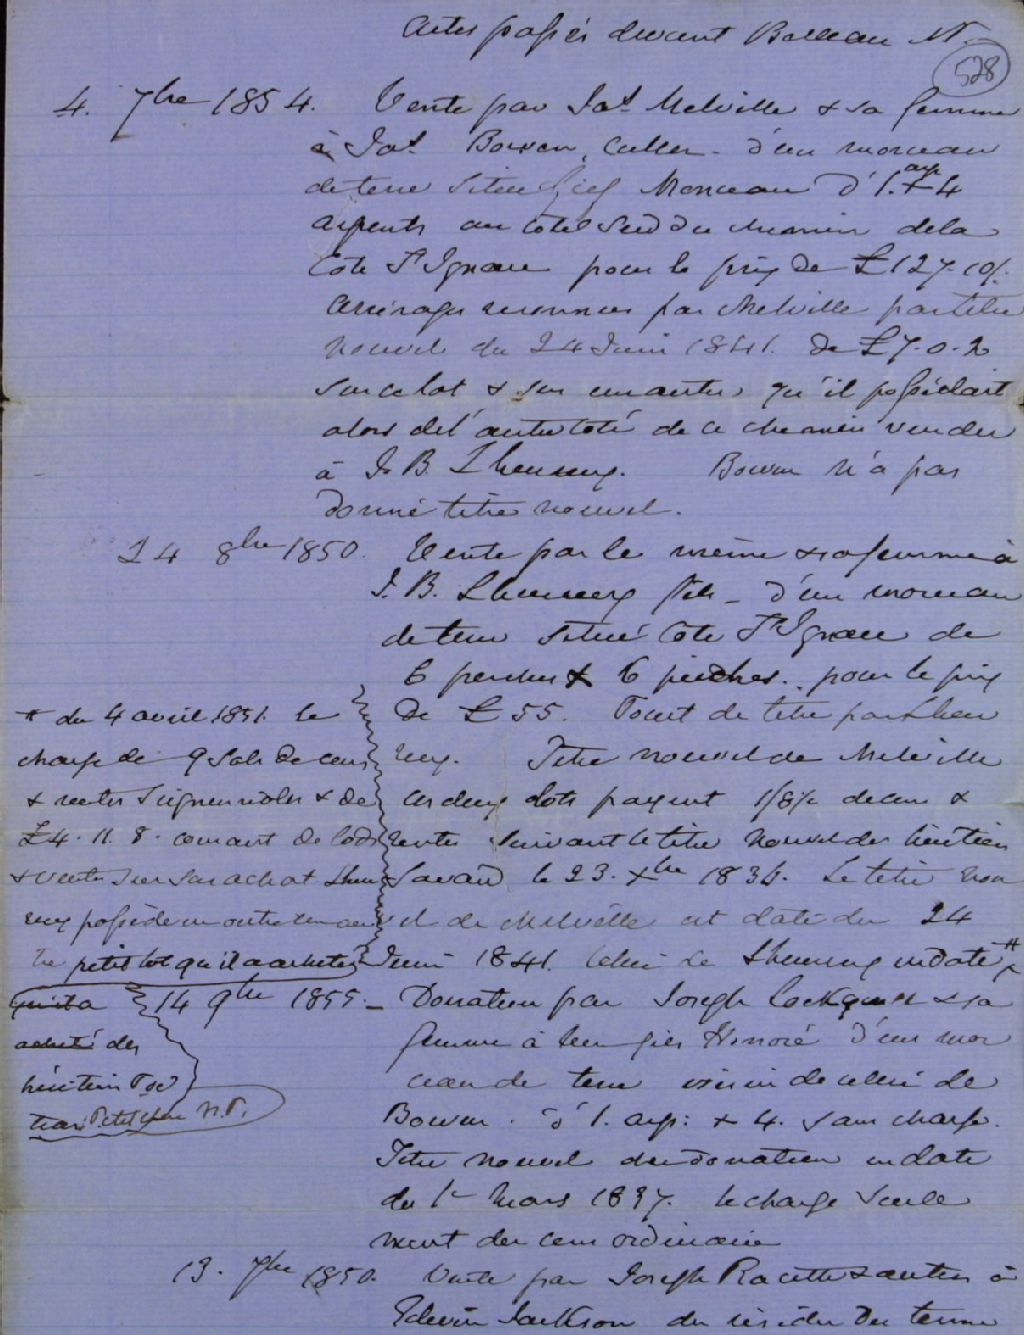 actes passés devant N.
528
4. 7bre 1854. Vente par Jas Melville & sa femme
à Jas Bowen, Culler - d'un morceau
de terre situé fief Monceau d'1. arp x 4
arpents au côté Sud du chemin de la
Côte St Ignace pour le prix de £127.10/.
arrérages reconnus par Melville par titre
nouvel du 24 Juin 1841. de £7.0.2
sur ce lot & sur un autre, qu'il possédait
alors de l'autre côté de ce chemin vendu
à J. B. L'heureux. Bowen n'a pas
donné titre nouvel.
24 8bre 1850. Vente par le même & sa femme à
J. B. Lheureux fils - d'un morceau
de terre situé Côte St Ignace de
6 perches x 6 perches. pour le prix
de £55. Point de titre par Lheu
reux. Titre nouvel de Melville
ces deux lots payent 1/8½ de cens &
rentes suivant le titre nouvel des héritiers
Savard le 23. xbre 1836. Le titre nou
vel de Melville est daté du 24
Juin 1841. Celui de Lheureux en date #
# du 4 avril 1851. le
charge de 9 sols de cens
& rentes Seigneuriales & de
£4.11.8. courant de lods
& ventes sur son achat Lheu
reux possède en outre un au
tre petit lot qu'il a acheté
acheté des
héritiers
N.P.
14 9bre 1855. - Donation par Joseph & sa
femme à leur fils Honoré d'un mor
ceau de terre voisin de celui de
Bowen. d'1. arp: x 4. sans charge.
Titre nouvel du donateur en date
du 1er Mars 1837. le charge seule
ment du cens ordinaire
13. 7bre 1850. Vente par Joseph Racette & autres à
Edwin Jackson du résidu du terrain